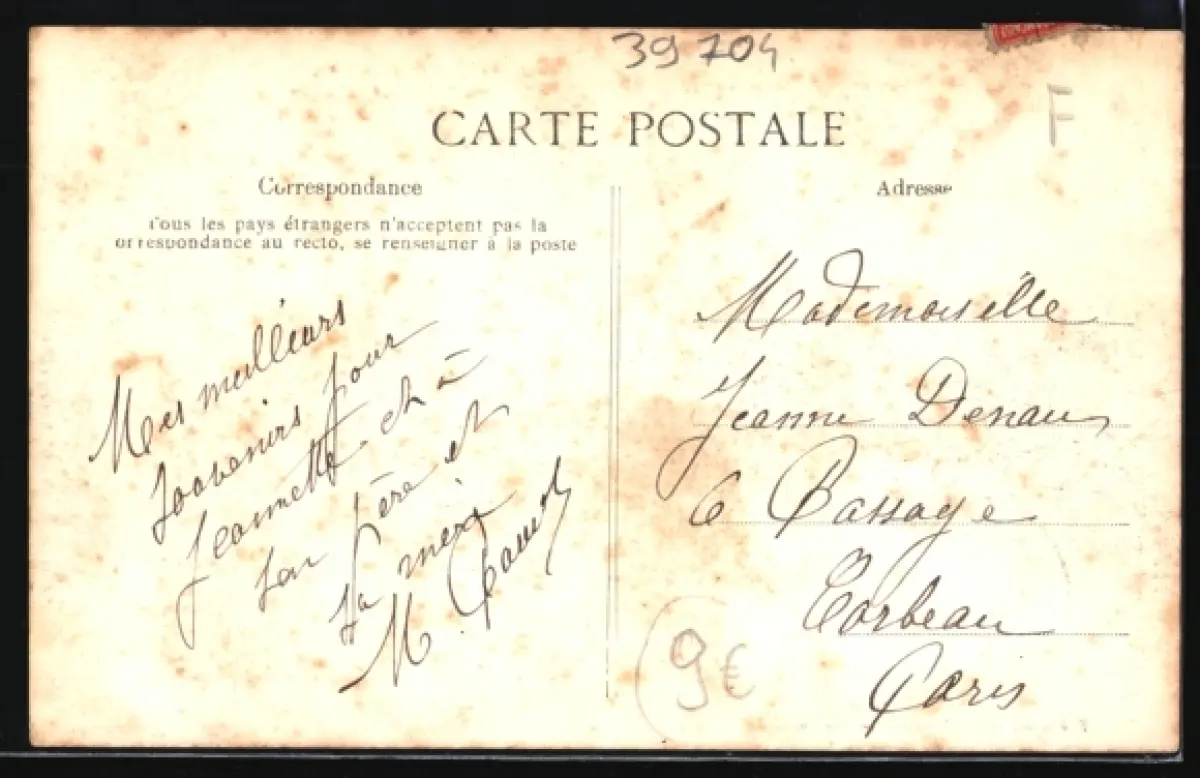 39704
CARTE POSTALE
F
Correspondance
Tous les pays étrangers n'acceptent pas la
orrespondance au recto, se renseigner à la poste
Mes meilleurs
souvenirs pour
Jeannette et à
son père et
sa mère
M.
Adresse
Mademoiselle
Jeanne
6 Passage
Corbeau
Paris
9€